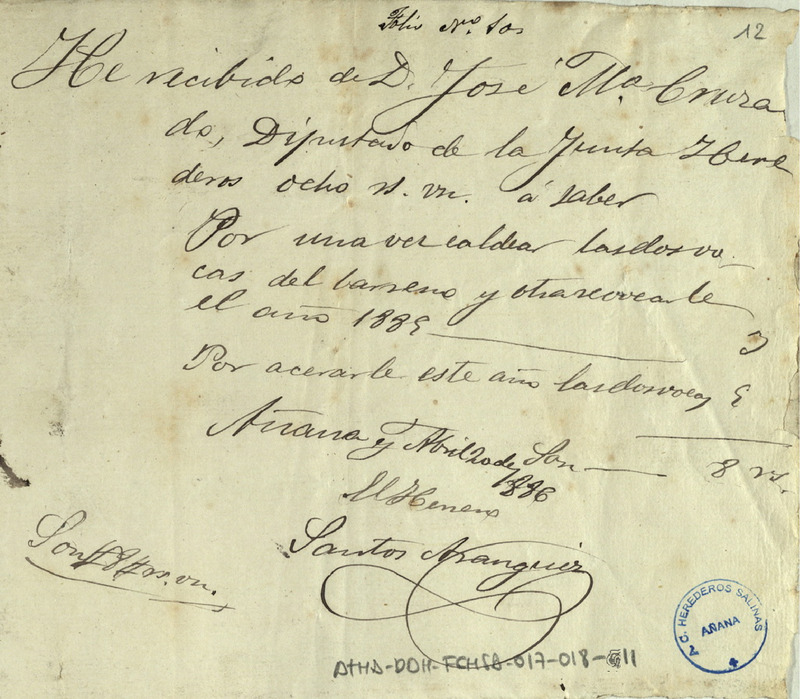 Folio Nº. dos
12
He recibido de D. José Mª Cruza
do, Diputado de la Junta Here
deros ocho rs. vn. á saber
Por una vez caldear lasdosvo
cas del barreno y otra
el año 1885
3
Por acerarle este año lasdosvocas 5
Son 8 rs.
Añana y Abril 20 de 1886
El Herrero
Santos Aranguiz
Son #8# rs. vn.
C. HEREDEROS SALINAS
AÑANA
ATHA-DDH-FCHSA-017-018-011